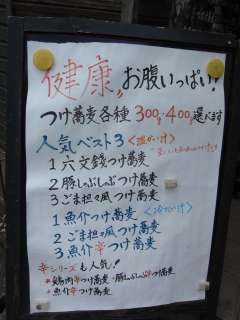 健康、お腹いっぱい!
つけ蕎麦各種 300g・400g 選べます
人気ベスト3 <温かい汁>
1 六文銭つけ蕎麦
2 豚しゃぶしゃぶつけ蕎麦
3 ごま担々風つけ蕎麦
<冷たい汁>
1 魚介つけ蕎麦
2 ごま担々風つけ蕎麦
3 魚介辛つけ蕎麦
辛シリーズも人気!
*鶏肉辛つけ蕎麦・豚しゃぶ辛つけ蕎麦
*魚介辛つけ蕎麦